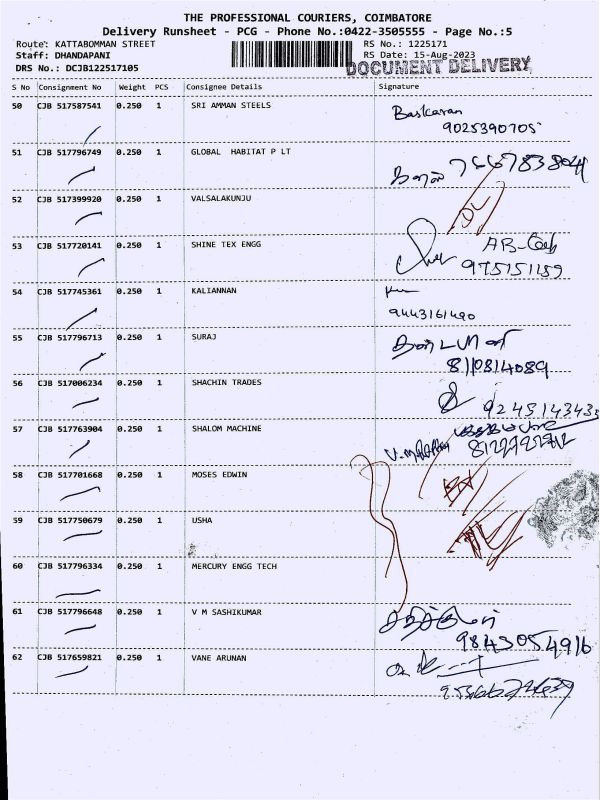 THE PROFESSIONAL COURIERS, COIMBATORE
Delivery Runsheet - PCG - Phone No.:0422-3505555 - Page No.:5
Route: KATTABOMMAN STREET RS No.: 1225171
Staff: DHANDAPANI RS Date: 15-Aug-2023
DRS No.: DCJB122517105 DOCUMENT DELIVERY
S No Consignment No Weight PCS Consignee Details Signature
50 CJB 517587541 0.250 1 SRI AMMAN STEELS Baskaran
9025390705
51 CJB 517796749 0.250 1 GLOBAL HABITAT P LT
52 CJB 517399920 0.250 1 VALSALAKUNJU DL
53 CJB 517720141 0.250 1 SHINE TEX ENGG
975151159
54 CJB 517745361 0.250 1 KALIANNAN
9443161490
55 CJB 517796713 0.250 1 SURAJ
8110814089
56 CJB 517006234 0.250 1 SHACHIN TRADES
9245143433
57 CJB 517763904 0.250 1 SHALOM MACHINE
58 CJB 517701668 0.250 1 MOSES EDWIN
59 CJB 517750679 0.250 1 USHA
60 CJB 517796334 0.250 1 MERCURY ENGG TECH
61 CJB 517796648 0.250 1 V M SASHIKUMAR
9843054916
62 CJB 517659821 0.250 1 VANE ARUNAN